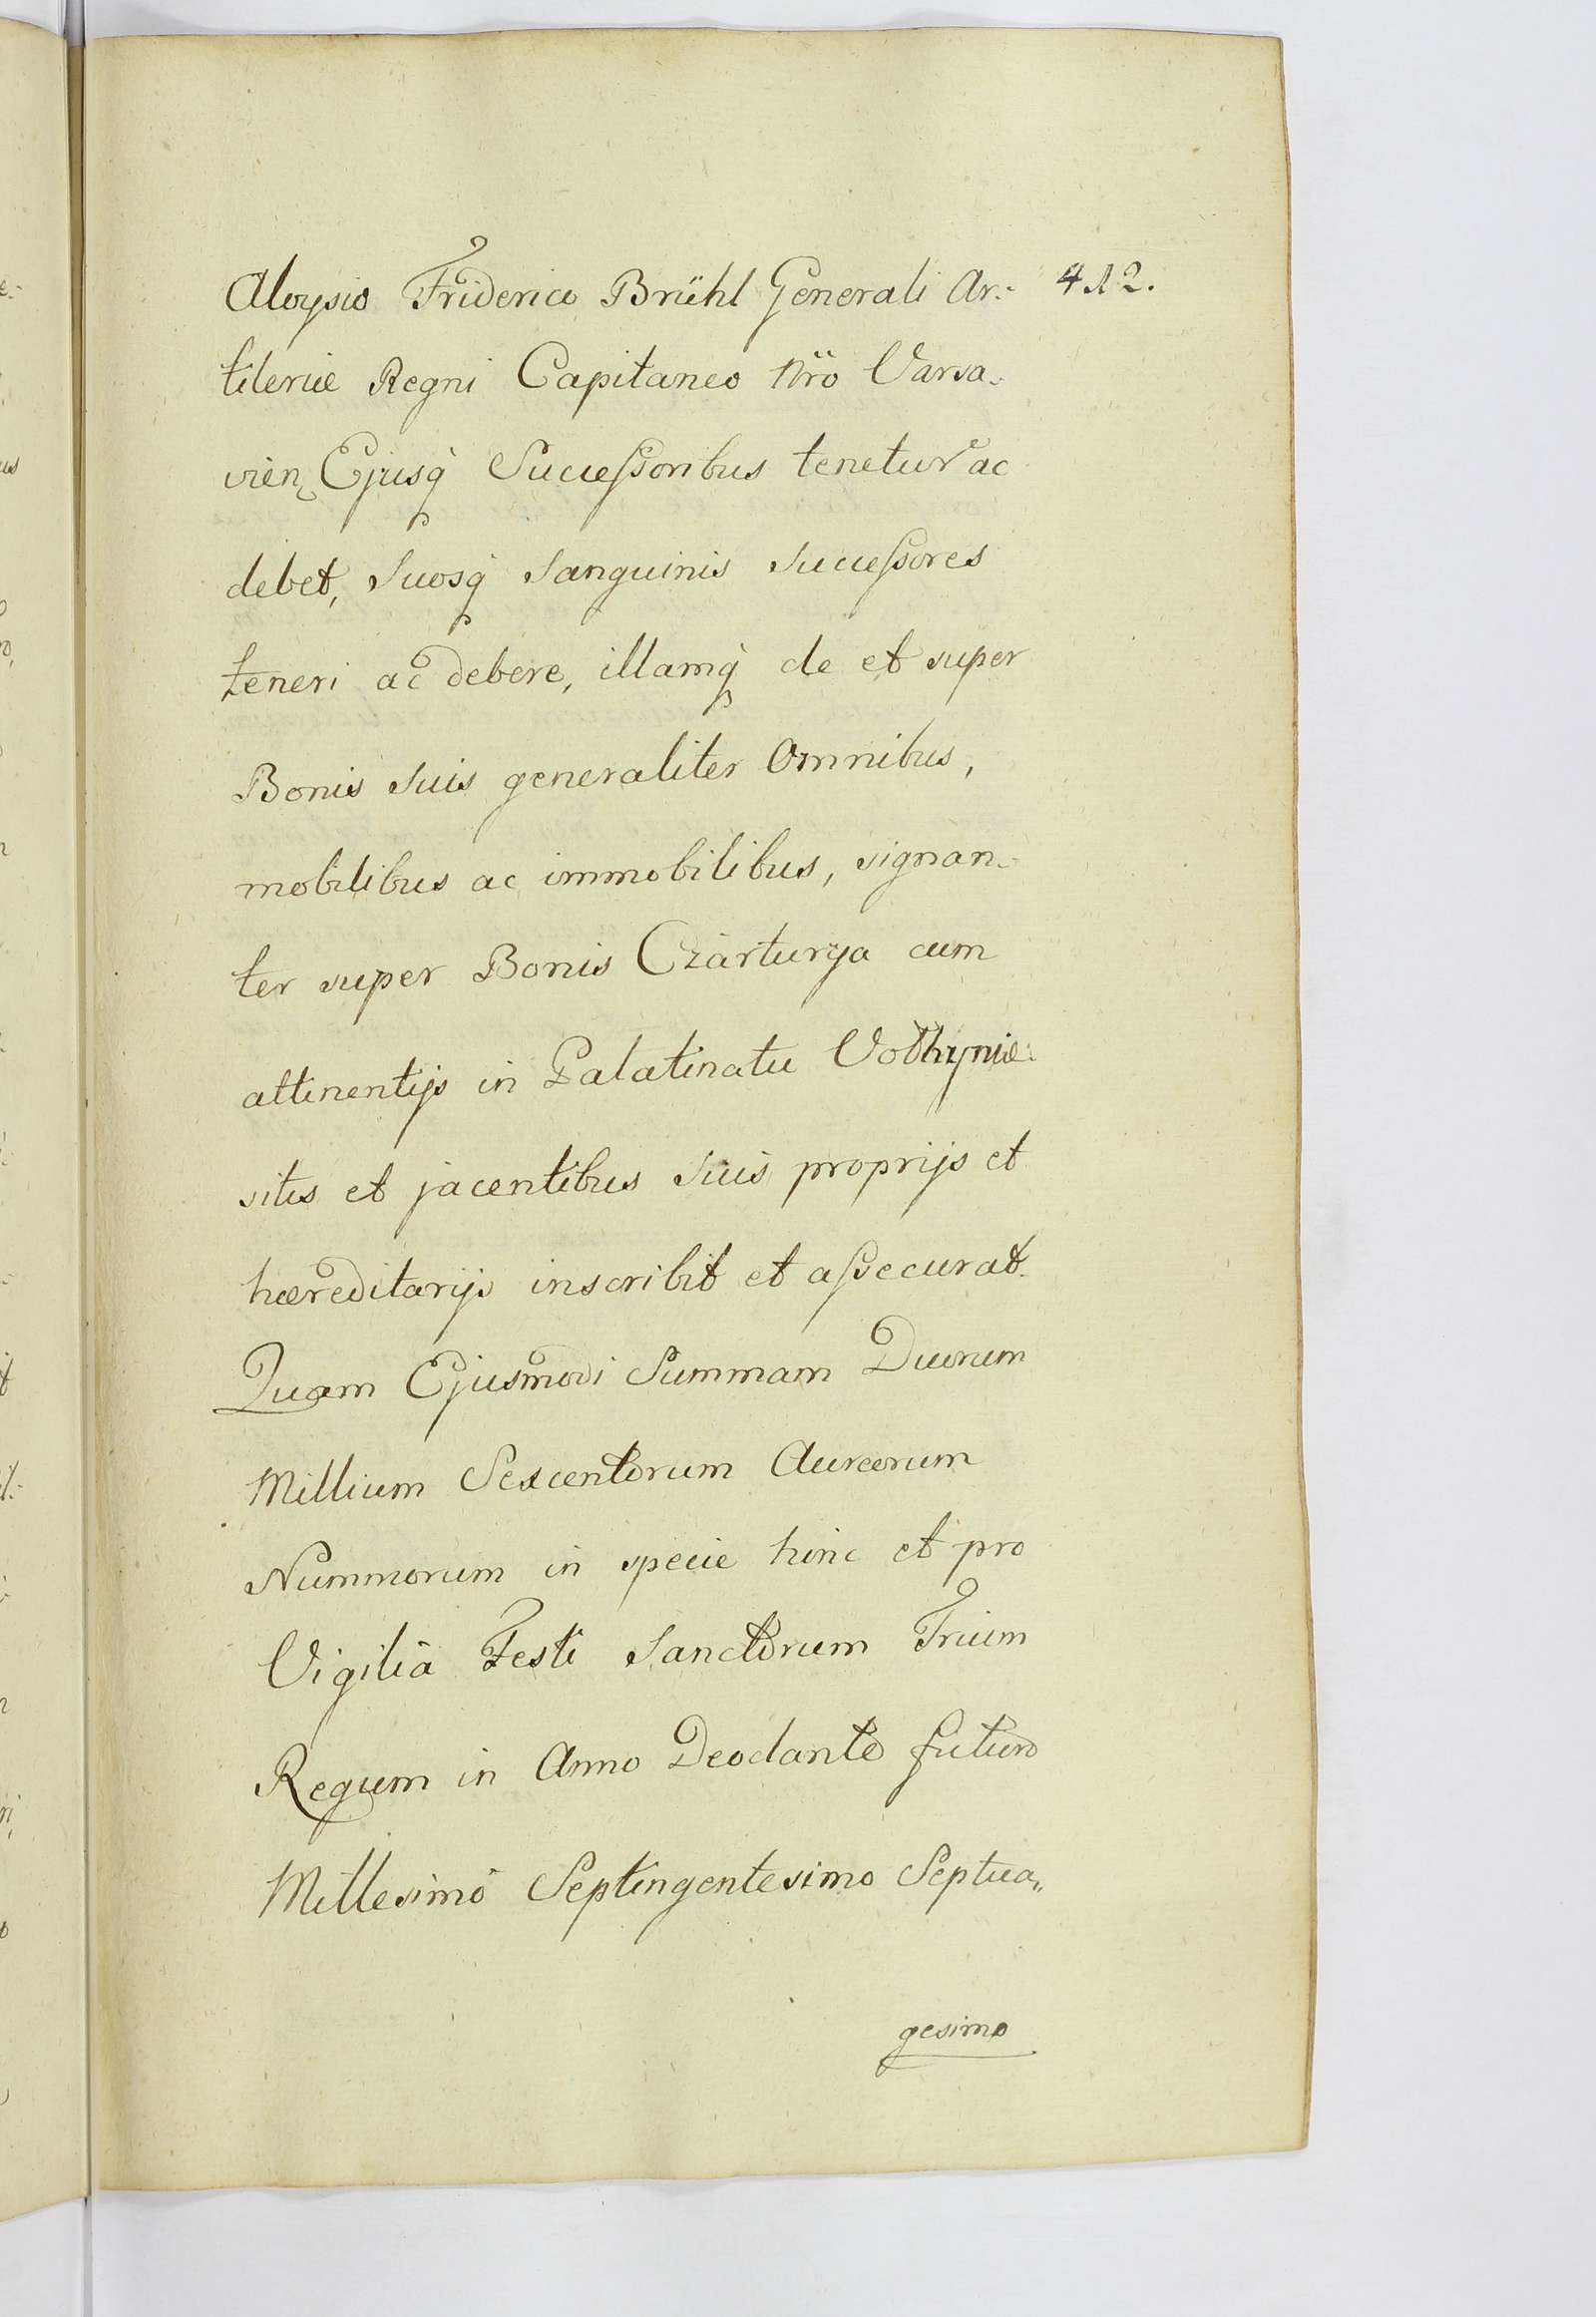 Aloysio Friderico Brühl Generali Ar:- 412.
tileriæ Regni Capitaneo Nro Varsa-
vien Ejusq Successoribus tenetur ac
debet, Suosq Sanguinis Successores
teneri ac debere, illamq de et super
Bonis Suis generaliter Omnibus,
mobilibus ac immobilibus, signan-
ter super Bonis Czarturya cum
attinentijs in Palatinatu Volhyniæ
sitis et jacentibus Suis proprijs et
hæreditarijs inscribit et assecurat.
Quam Ejusmodi Summam Duorum
Millium Sexcentorum Aureorum
Nummorum in specie hinc et pro
Vigiliâ Festi Sanctorum Trium
Regum in Anno Deodante futuro
Millesimo Septingentesimo Septua„
gesimo